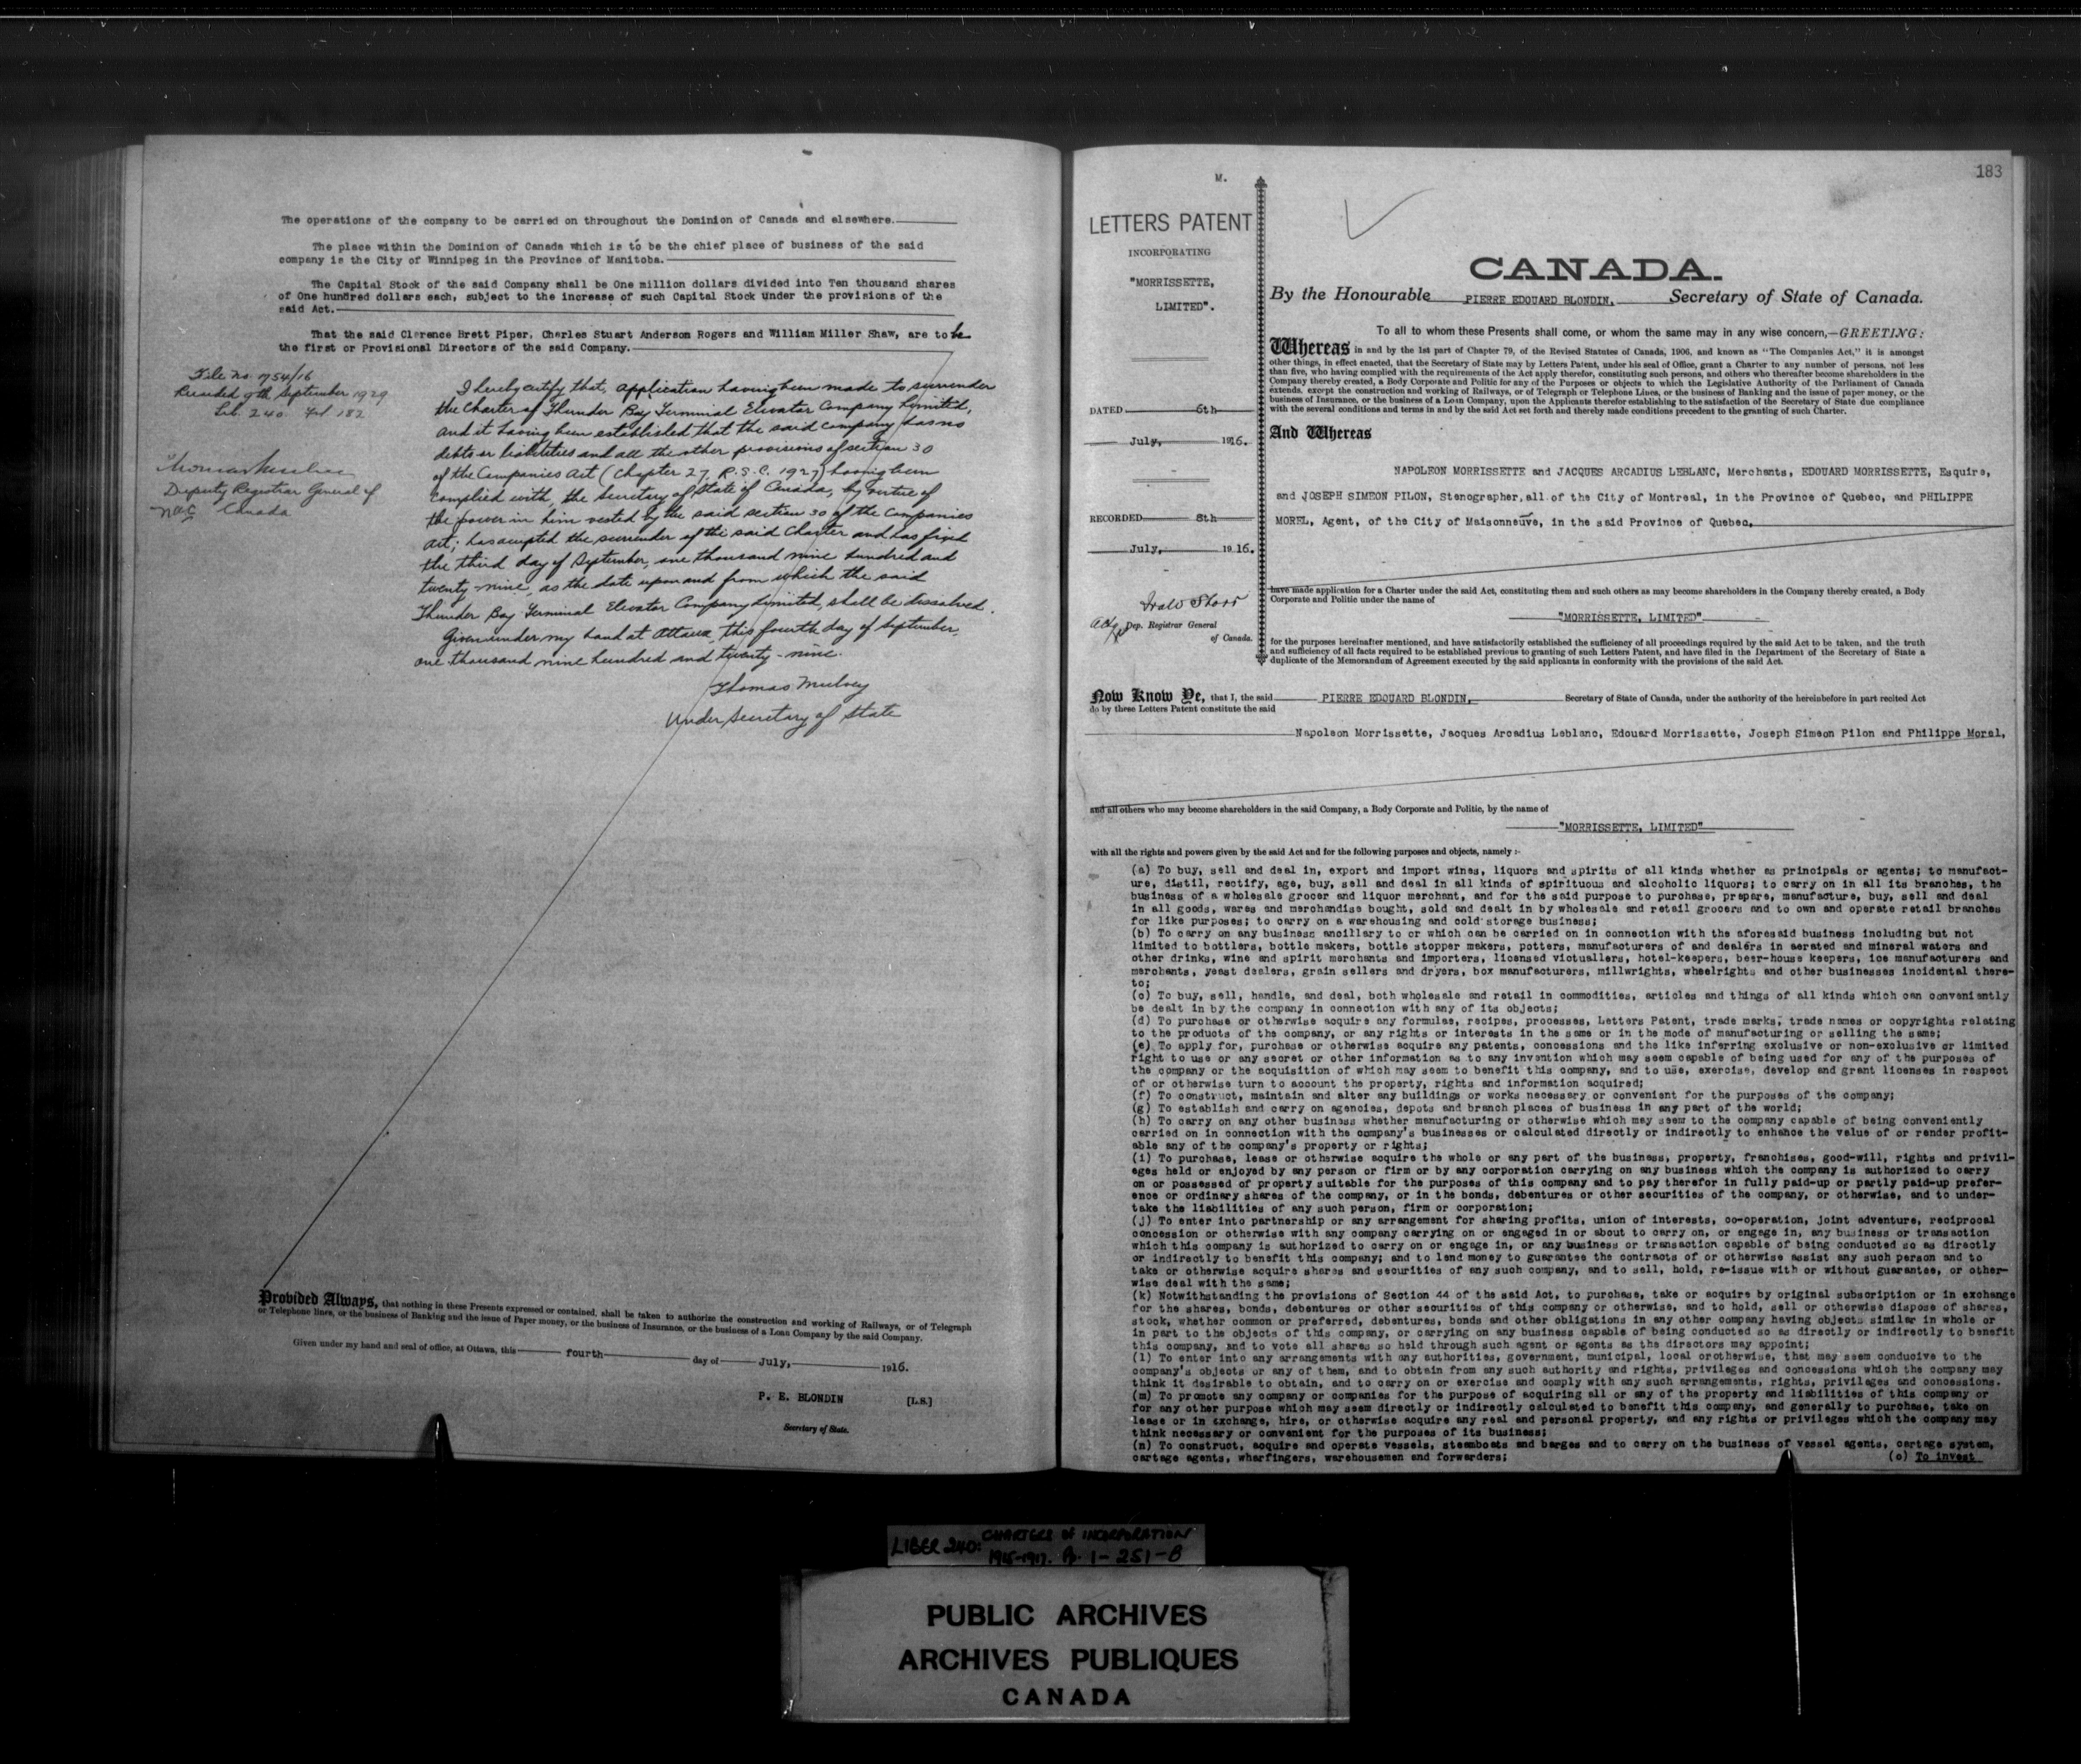 The operations of the company to be carried on throughout the Dominion of Canada and elsewhere.
The place within the Dominion of Canada which is to be the chief place of business of the said
company is the City of Winnipeg in the Province of Manitoba.
The Capital Stock of the said Company shall be One million dollars divided into Ten thousand shares
of One hundred dollars each, subject to the increase of such Capital Stock under the provisions of the
said Act.
That the said Clarence Brett Piper, Charles Stuart Anderson Rogers and William Miller Shaw, are to be
the first or Provisional Directors of the said Company.
File no. 1754/16
Recorded 9th September 1929
Lib. 240. Fol. 182
Deputy Registrar General of
Canada
I hereby certify that, application having been made to surrender
the Charter of Thunder Bay Terminal Elevator Company Limited,
and it having been established that the said company has no
debts or liabilities and all the other provisions of section 30
of the Companies Act (Chapter 27, R.S.C. 1927) having been
complied with, the Secretary of State of Canada, by virtue of
the power in him vested by the said section 30 of the Companies
Act; has accepted the surrender of the said Charter and has fixed
the third day of September, one thousand nine hundred and
twenty-nine, as the date upon and from which the said
Thunder Bay Terminal Elevator Company Limited, shall be dissolved.
Given under my hand at Ottawa, this fourth day of September,
one thousand nine hundred and twenty-nine.
Thomas Mulvey
Under Secretary of State
Provided Always, that nothing in these Presents expressed or contained, shall be taken to authorize the construction and working of Railways, or of Telegraph
or Telephone lines, or the business of Banking and the issue of Paper money, or the business of Insurance, or the business of a Loan Company by the said Company.
Given under my hand and seal of office, at Ottawa, this fourth day of July, 1916.
P. E. BLONDIN [L.S.]
Secretary of State.
183
M.
LETTERS PATENT
INCORPORATING
"MORRISSETTE,
LIMITED".
DATED 6th
July, 1916.
RECORDED 8th
July, 1916.
Actg Dep. Registrar General
of Canada.
CANADA.
By the Honourable PIERRE EDOUARD BLONDIN, Secretary of State of Canada.
To all to whom these Presents shall come, or whom the same may in any wise concern,—GREETING:
Whereas in and by the 1st part of Chapter 79, of the Revised Statutes of Canada, 1906, and known as "The Companies Act," it is amongst
other things, in effect enacted, that the Secretary of State may by Letters Patent, under his seal of Office, grant a Charter to any number of persons, not less
than five, who having complied with the requirements of the Act apply therefor, constituting such persons, and others who thereafter become shareholders in the
Company thereby created, a Body Corporate and Politic for any of the Purposes or objects to which the Legislative Authority of the Parliament of Canada
extends, except the construction and working of Railways, or of Telegraph or Telephone Lines, or the business of Banking and the issue of paper money, or the
business of Insurance, or the business of a Loan Company, upon the Applicants therefor establishing to the satisfaction of the Secretary of State due compliance
with the several conditions and terms in and by the said Act set forth and thereby made conditions precedent to the granting of such Charter.
And Whereas
NAPOLEON MORRISSETTE and JACQUES ARCADIUS LEBLANC, Merchants, EDOUARD MORRISSETTE, Esquire,
and JOSEPH SIMEON PILON, Stenographer, all of the City of Montreal, in the Province of Quebec, and PHILIPPE
MOREL, Agent, of the City of Maisonneuve, in the said Province of Quebec,
have made application for a Charter under the said Act, constituting them and such others as may become shareholders in the Company thereby created, a Body
Corporate and Politic under the name of
"MORRISSETTE, LIMITED"
for the purposes hereinafter mentioned, and have satisfactorily established the sufficiency of all proceedings required by the said Act to be taken, and the truth
and sufficiency of all facts required to be established previous to granting of such Letters Patent, and have filed in the Department of the Secretary of State a
duplicate of the Memorandum of Agreement executed by the said applicants in conformity with the provisions of the said Act.
Now Know Ye, that I, the said PIERRE EDOUARD BLONDIN, Secretary of State of Canada, under the authority of the hereinbefore in part recited Act
do by these Letters Patent constitute the said
Napoleon Morrissette, Jacques Arcadius Leblanc, Edouard Morrissette, Joseph Simeon Pilon and Philippe Morel,
and all others who may become shareholders in the said Company, a Body Corporate and Politic, by the name of
"MORRISSETTE, LIMITED"
with all the rights and powers given by the said Act and for the following purposes and objects, namely :-
(a) To buy, sell and deal in, export and import wines, liquors and spirits of all kinds whether as principals or agents; to manufact-
ure, distil, rectify, age, buy, sell and deal in all kinds of spirituous and alcoholic liquors; to carry on in all its branches, the
business of a wholesale grocer and liquor merchant, and for the said purpose to purchase, prepare, manufacture, buy, sell and deal
in all goods, wares and merchandise bought, sold and dealt in by wholesale and retail grocers and to own and operate retail branches
for like purposes; to carry on a warehousing and cold storage business;
(b) To carry on any business ancillary to or which can be carried on in connection with the aforesaid business including but not
limited to bottlers, bottle makers, bottle stopper makers, potters, manufacturers of and dealers in aerated and mineral waters and
other drinks, wine and spirit merchants and importers, licensed victuallers, hotel-keepers, beer-house keepers, ice manufacturers and
merchants, yeast dealers, grain sellers and dryers, box manufacturers, millwrights, wheelrights and other businesses incidental there-
to;
(c) To buy, sell, handle, and deal, both wholesale and retail in commodities, articles and things of all kinds which can conveniently
be dealt in by the company in connection with any of its objects;
(d) To purchase or otherwise acquire any formulas, recipes, processes, Letters Patent, trade marks, trade names or copyrights relating
to the products of the company, or any rights or interests in the same or in the mode of manufacturing or selling the same;
(e) To apply for, purchase or otherwise acquire any patents, concessions and the like inferring exclusive or non-exclusive or limited
right to use or any secret or other information as to any invention which may seem capable of being used for any of the purposes of
the company or the acquisition of which may seem to benefit this company, and to use, exercise, develop and grant licenses in respect
of or otherwise turn to account the property, rights and information acquired;
(f) To construct, maintain and alter any buildings or works necessary or convenient for the purposes of the company;
(g) To establish and carry on agencies, depots and branch places of business in any part of the world;
(h) To carry on any other business whether manufacturing or otherwise which may seem to the company capable of being conveniently
carried on in connection with the company's businesses or calculated directly or indirectly to enhance the value of or render profit-
able any of the company's property or rights;
(i) To purchase, lease or otherwise acquire the whole or any part of the business, property, franchises, good-will, rights and privil-
eges held or enjoyed by any person or firm or by any corporation carrying on any business which the company is authorized to carry
on or possessed of property suitable for the purposes of this company and to pay therefor in fully paid-up or partly paid-up prefer-
ence or ordinary shares of the company, or in the bonds, debentures or other securities of the company, or otherwise, and to under-
take the liabilities of any such person, firm or corporation;
(j) To enter into partnership or any arrangement for sharing profits, union of interests, co-operation, joint adventure, reciprocal
concession or otherwise with any company carrying on or engaged in or about to carry on, or engage in, any business or transaction
which this company is authorized to carry on or engage in, or any business or transaction capable of being conducted so as directly
or indirectly to benefit this company; and to lend money to guarantee the contracts of or otherwise assist any such person and to
take or otherwise acquire shares and securities of any such company, and to sell, hold, re-issue with or without guarantee, or other-
wise deal with the same;
(k) Notwithstanding the provisions of Section 44 of the said Act, to purchase, take or acquire by original subscription or in exchange
for the shares, bonds, debentures or other securities of this company or otherwise, and to hold, sell or otherwise dispose of shares,
stock, whether common or preferred, debentures, bonds and other obligations in any other company having objects similar in whole or
in part to the objects of this company, or carrying on any business capable of being conducted so as directly or indirectly to benefit
this company, and to vote all shares so held through such agent or agents as the directors may appoint;
(l) To enter into any arrangements with any authorities, government, municipal, local orotherwise, that may seem conducive to the
company's objects or any of them, and to obtain from any such authority and rights, privileges and concessions which the company may
think it desirable to obtain, and to carry on or exercise and comply with any such arrangements, rights, privileges and concessions.
(m) To promote any company or companies for the purpose of acquiring all or any of the property and liabilities of this company or
for any other purpose which may seem directly or indirectly calculated to benefit this company, and generally to purchase, take on
lease or in exchange, hire, or otherwise acquire any real and personal property, and any rights or privileges which the company may
think necessary or convenient for the purposes of its business;
(n) To construct, acquire and operate vessels, steamboats and barges and to carry on the business of vessel agents, cartage system,
cartage agents, wharfingers, warehousemen and forwarders;
(o) To invest
LIBER 240: CHARTERS OF INCORPORATION
1915-1917. Pp. 1-251-B
PUBLIC ARCHIVES
ARCHIVES PUBLIQUES
CANADA